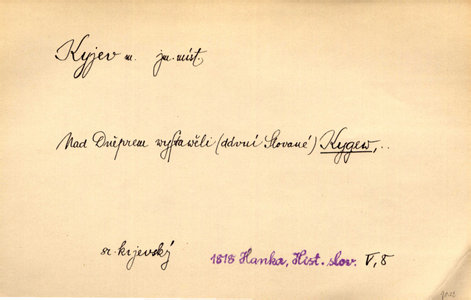 Kyjev m. jm. míst.
Nad Dněprem wystawěli (dávní Slované) Kygew,..
sr. kijevský
1818 Hanka, Hist. slov. V, 8